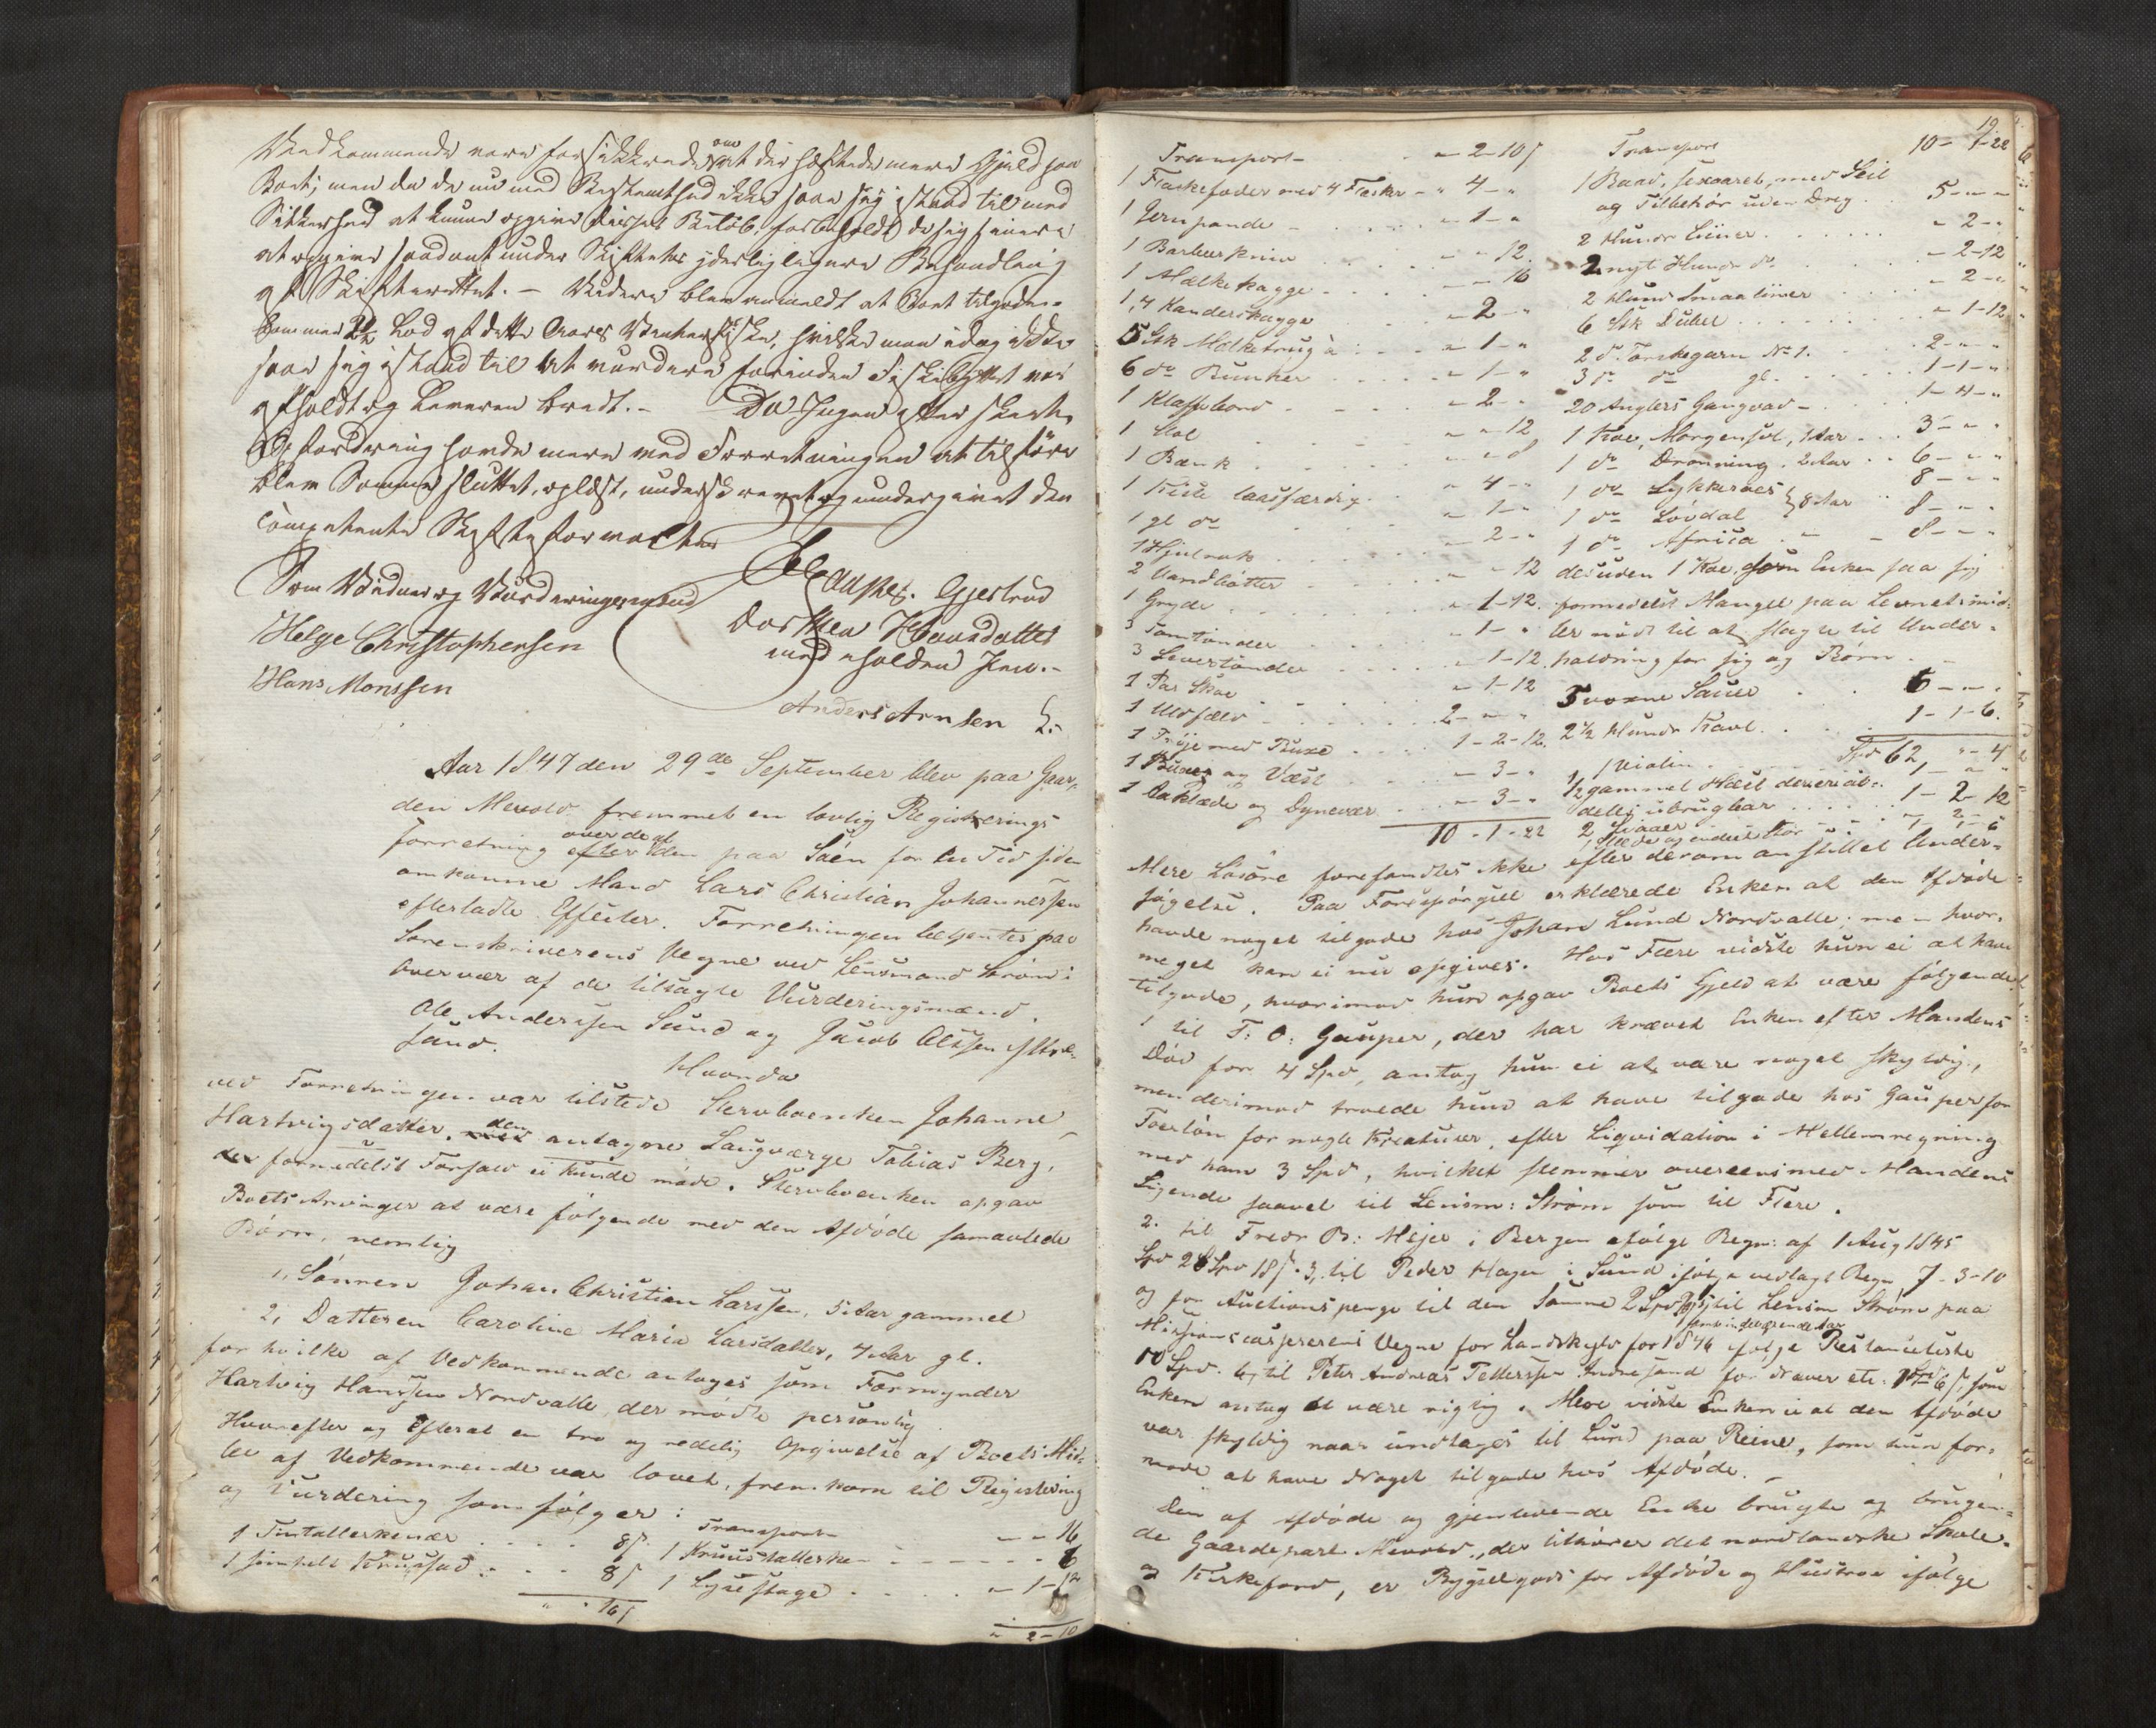 Vedkommende vare forsikkrede om at der hæftede mere Gjæld paa
Boet; men da de nu med Bestemthed ikke saae sig istand til med
Sikkerhed at kunne opgive dennes Beløb, forbeholdt de sig senere
at opgive saadant under Skiftets yderligere Behandling
af Skifteretten. – Videre blev anmeldt at Boet tilgode-
kommer 2½ Lod af dette Aars Vinterfiske, hvilke man idag ikke
saae sig istand til at vurdere forinden Fiskebyttet var
afholdt og Leveren brædt. – Da Ingen efter skeet
Opfordring havde mere ved Forretningen at tilføre
blev Samme sluttet, oplæst, underskrevet og undergivet den
competente Skifteforvalter
Som Vidner og Vurderingsmænd
Helge Christophersen
Hans Monssen
Gjertrud
Dorthea Hansdatter
med paaholden Pen. –
Anders Arntsen
Aar 1847 den 29de September blev paa Gaar-
den Mevold fremmet en lovlig Registrerings
forretning over de af den paa Søen for en Tid siden
omkomne Mand Lars Christian Johannessen
efterladte Effecter. Forretningen betjentes paa
Sorenskriverens Vegne ved Lensmand Strøm i
Overvær af de tilsagte Vurderingsmænd.
Ole Anderssen Sund og Jacob Olssen
sund.
Hvorda
ved Forretningen var tilstede Stervboenken Johanne
Hartvigsdatter. den antagne Laugværge Tobias Berg,
der formedelst Forfald ei kunde møde. Stervboenken opgav
Boets Arvinger at være følgende med den Afdøde sammenavlede
Børn, nemlig
1, Sønnen Johan Christian Larssen, 5 Aar gammel
2, Datteren Caroline Maria Larsdatter, 4 Aar gl.
for hvilke af Vedkommende antoges som Formynder
Hartvig Hanssen Nordvalle der mødte personlig
Hvorefter og efterat en tro og redelig Opgivelse af Boets Mid-
ler af Vedkommende var lovet, fremkom til Registrering
og Vurdering som følger:
1 Tintallerkenær . . . . 8 s
1 simpelt Kruusfad . . . 8 s
" " 16 s
Transport – " " 16
1 Kruustallerken – – – – – 6
1 Lysestage . . . . " 1-12
" 2 – 10
19
Transport – " 2-10 s
1 Flaskefoder med 4 Flasker – " 4 – "
1 Jernpande – . . . . . " 1 – "
1 Barbeerkniv . . . . " " 12.
1 Melkekagge . . . . " " 16
1, 4 Kanderskagge . . " 2 – "
5 Stk Melketrug à . . . " 1 – "
6 do Bunker . . . . . " 1 – "
1 Klaffebord – . . . " 2 – "
1 Stol . . . . . . " " 12
1 Bænk . . . . . . " " 8
1 Kiste laasfærdig . . . " 4 – "
1 gl do . . . . . . " 1 – "
1 Hjulrok . . . . . " 2 – "
2 Vandbøtter . . . . . " " 12
1 Gryde . . . . . . " 1-12.
3 Tomtønder . . . . . " 1 – "
3 Levertønder . . . . " 1-12
1 Par Skoe . . . . . " 1-12
1 Uldfæld . . . . . . 2 – " "
1 Trøje med Buxe . . . 1-2-12.
1 Buxer og Væst . . . " 3 – "
1 Laklæde og Dynevær . . " 3 – "
10-1-22
Transport 10-1-22
1 Baad, sexaaret, med Seil
og Tilbehør uden Dreg . . 5 – " –
2 Hundr Liiner . . . . . " 2 – "
2 nyt Hundr do . . . . . " 2-12
2 Hund Smaaliiner . . . . " 2 – "
6 Stk Dubel . . . . . . " 1-12
2 do Torskegarn No 1. . . . 2 – " "
3 do do gl. . . . . . 1-1 – "
20 Anglers Gangvad – . . . . 1-4 – "
1 Koe, Morgensol, 7 Aar . . . 3 – " "
1 do Dronning, 2 Aar . . 6 – " "
1 do Lykkeroes } 8 Aar . . 8 – " "
1 do Løvdal . . . 8 – " "
1 do Africa . – – 8 – " "
desuden 1 Koe, som Enken saa sig
formedelst Mangel paa Levnetsmid-
ler nødt til at slagte til Under-
holdning for sig og Børn . –
5 voxne Sauer . . . 5 – " –
2½ Hundr Kavl . . . 1-1-6.
Spd 62 " – 4
1 Violin . . . . . . 1 – " "
½ gammel Hest deseriøb-
deels ubrugbar . . . . . 1-2-12
2 Svaaer
Mere Løsøre forefandtes ikke efter derom anstillet Under-
søgelse. Paa Forespørgsel erklærede Enken at den Afdøde
havde noget tilgode hos Johan Lund Nordvalle; men hvor-
meget kan ei nu opgives. Hos Flere vidste hun ei at have
tilgode, hvorimod hun opgav Boets Gjeld at være følgende:
1 til T: O: Gauper, der har krævet Enken efter Mandens
Død for 4 Spd, antog hun ei at være noget skyldig,
men derimod troede hun at have tilgode hos Gauper for
Foerløn for nogle Kreaturer, efter Liqvidation i Mellemregning
med ham 3 Spd, hvilket stemmer overeens med Mandens
Sigende saavel til Lensm: Strøm som til Flere.
2. til Fredr B: Mejer i Bergen ifølge Regn: af 1 Aug 1845
Spd 28 Spd 18 s. 3, til Peder Hagen i Sund ifølge vedlagt Regn 7-3-10
og for Auctionspenge til den Samme 2 Spd til Lensm Strøm paa
Missionscasserens Vegne for Landskyld for 1846 samt indeværende Aar ifølge Restanceliste
10 Spd. 4, til Peter Andreas Tellefsen Andresund for Naver etc: 1 Spd 6 s, som
Enken antog at være rigtig. Mere vidste Enken ei at den Afdøde
var skyldig naar undtages til Lund paa Reine, som hun for-
mode at have Noget tilgode hos Afdøde. –
Den af Afdøde og gjenlevende Enke brugte og brugen-
de Gaardepart Mevold, der tilhører det nordlandske Skole-
og Kirkefond, er Bygselgods for Afdøde og Hustroe ifølge